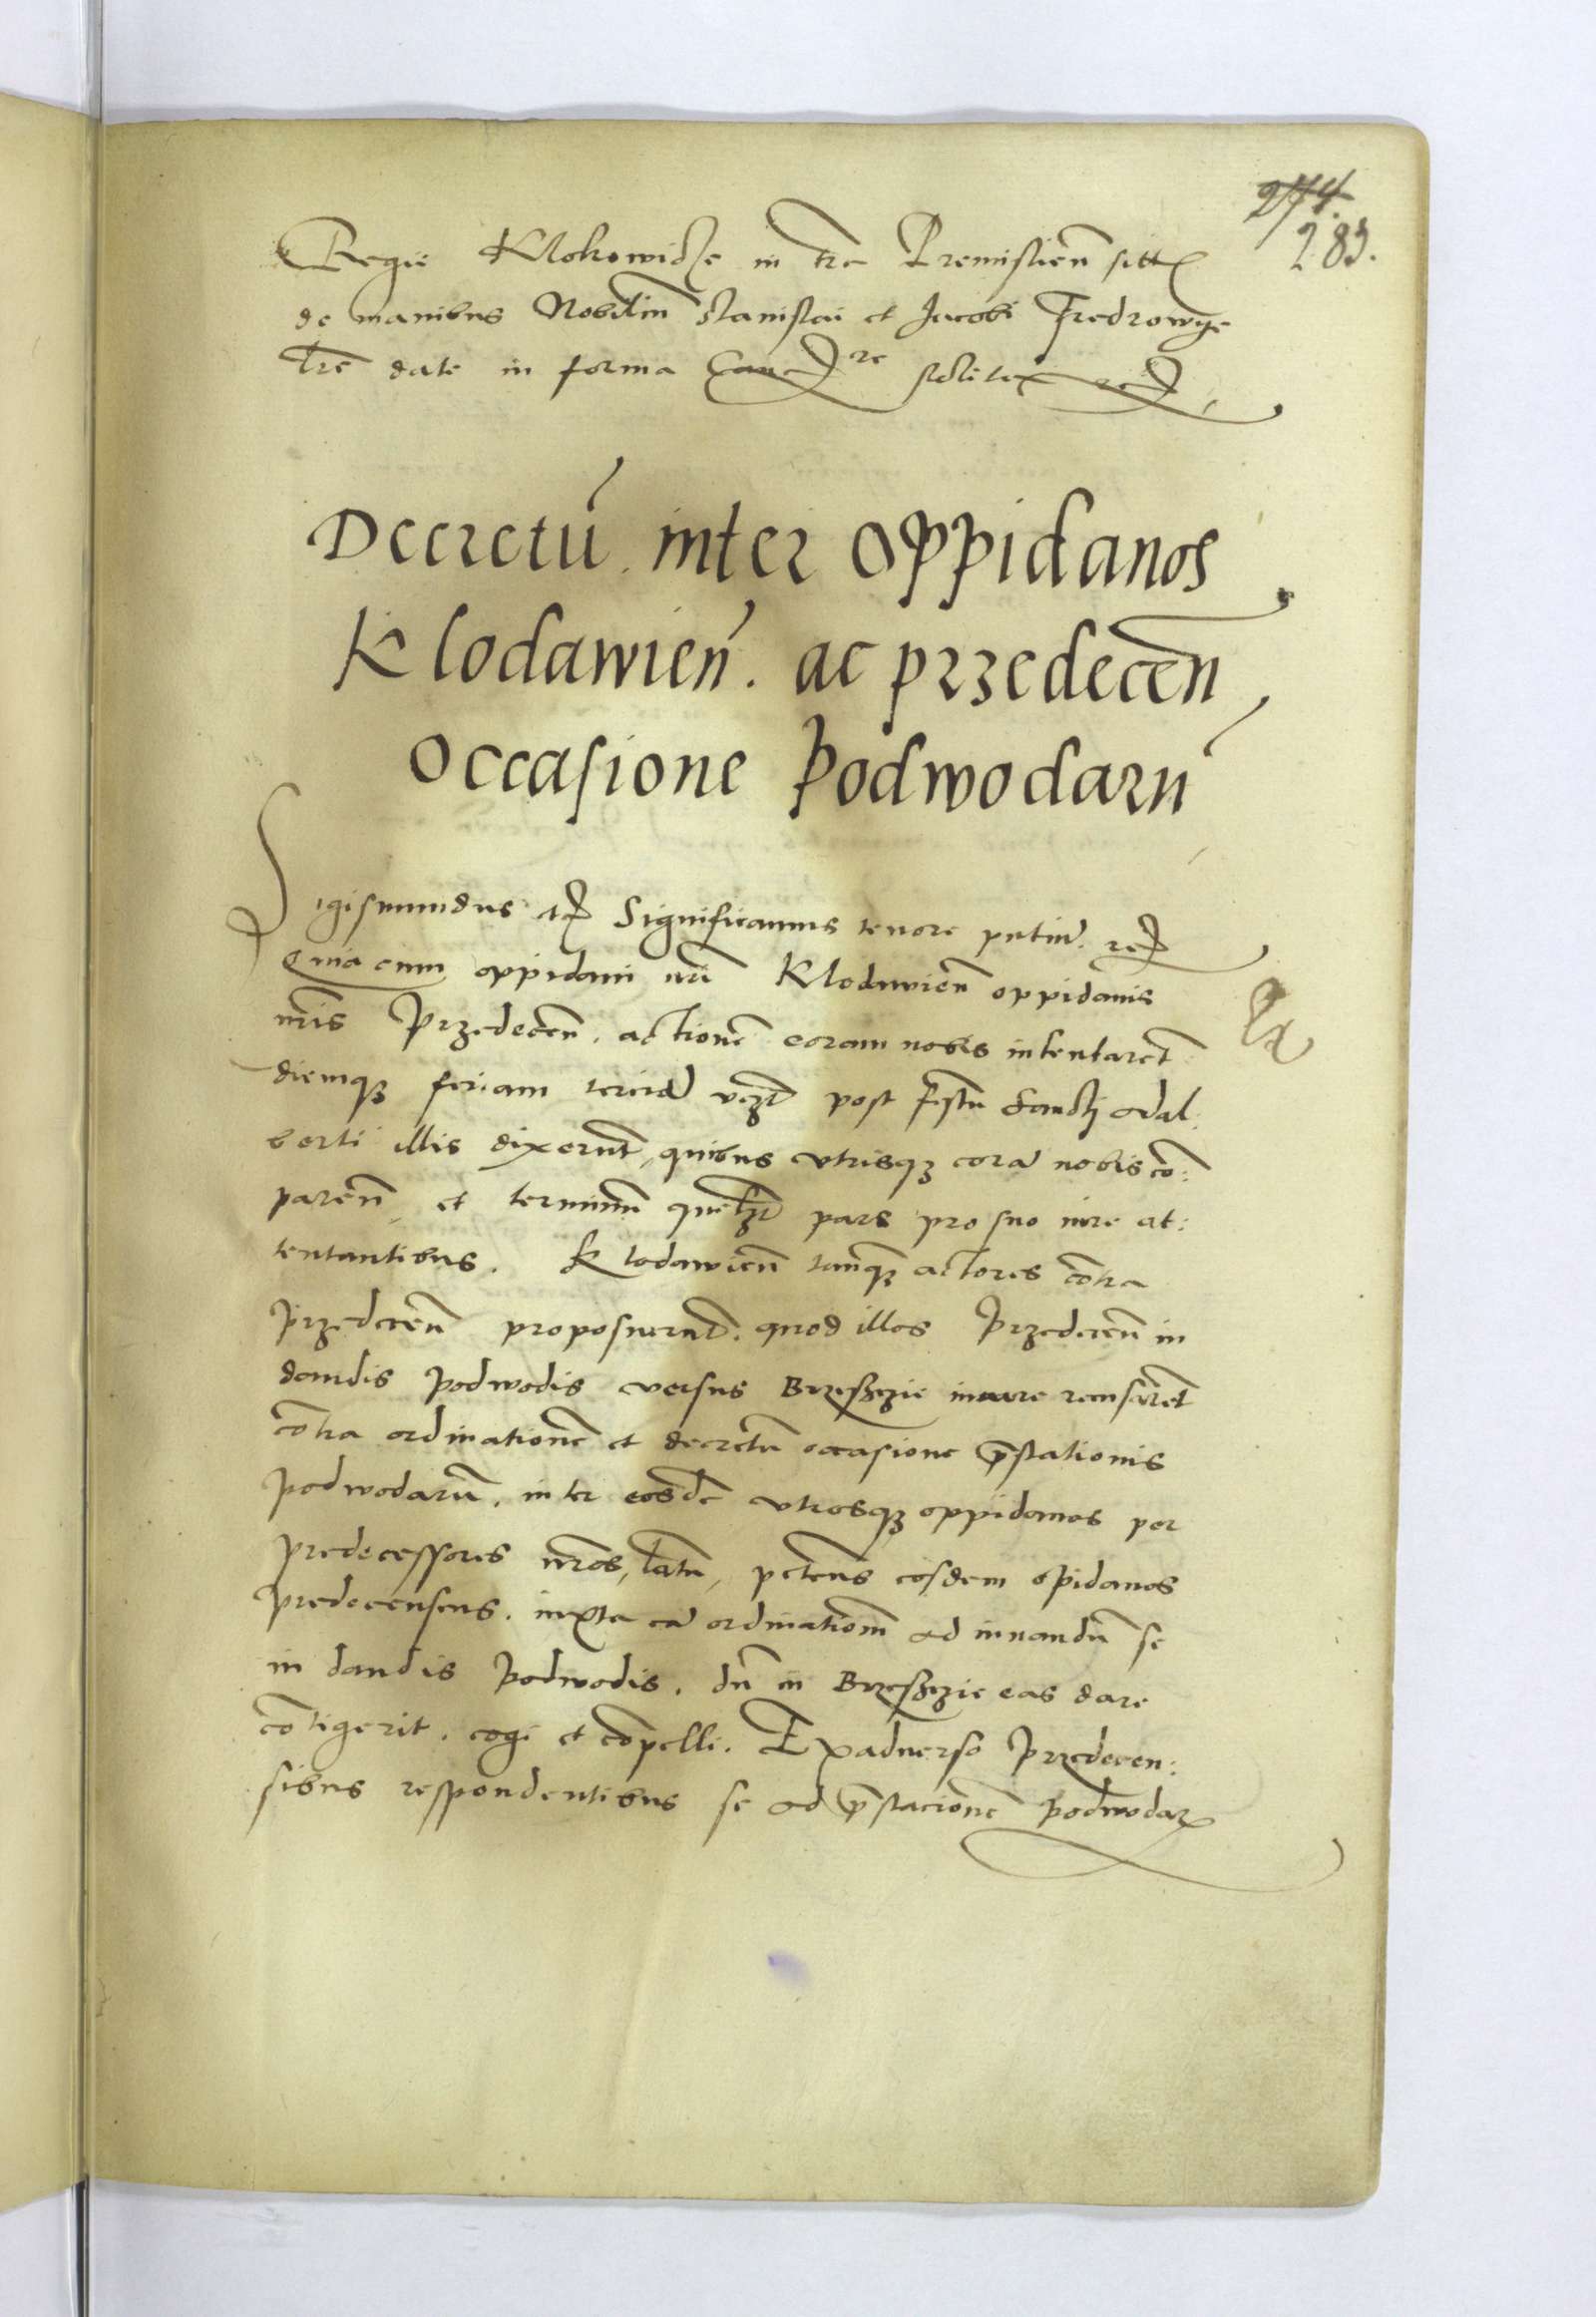 274.
283.
Regie Klokowicze in tra Premislien̄ sitt
de manibus Nobiliū Stanislai et Jacobi Fredrowye
Lrē date in forma Canc̃re solite
Decretū inter oppidanos
Klodawien̄. ac przedecēn
occasione Podwodarū
Sigismundus Significamus tenore pntiū.
Quia cum oppidani nrī Klodawien̄ oppidanis
nrīs Przedecen̄. actionē coram nobis intentarēt
diemqȝ feriam terciā post festū Sancti Adal
berti illis dixerunt, quibus utrisqȝ corā nobis cō:
paren̄ et terminū pars pro suo iure at:
tentantibus. Klodawien̄ tanqȝ actores cōtra
Przedecen̄ proposuerunt. quod illos Przedecen̄ in
dandis podwodis versus Brzesczie iuuare recusarēt
cōtra ordinationē et decretū occasione p̄stationis
podwodarū. inter eosdē utrosqȝ oppidanos per
predecessores nrōs, latū, petens eosdem opidanos
predecensens. iuxta eā ordinationem ad iuuandū se
in dandis podwodis. dū in Brzesczie eas dare
cōtigerit. cogi et cōpelli. Exaduerso Przedecen:
sibus respondentibus se ad p̄stacionē podwodarꝝ